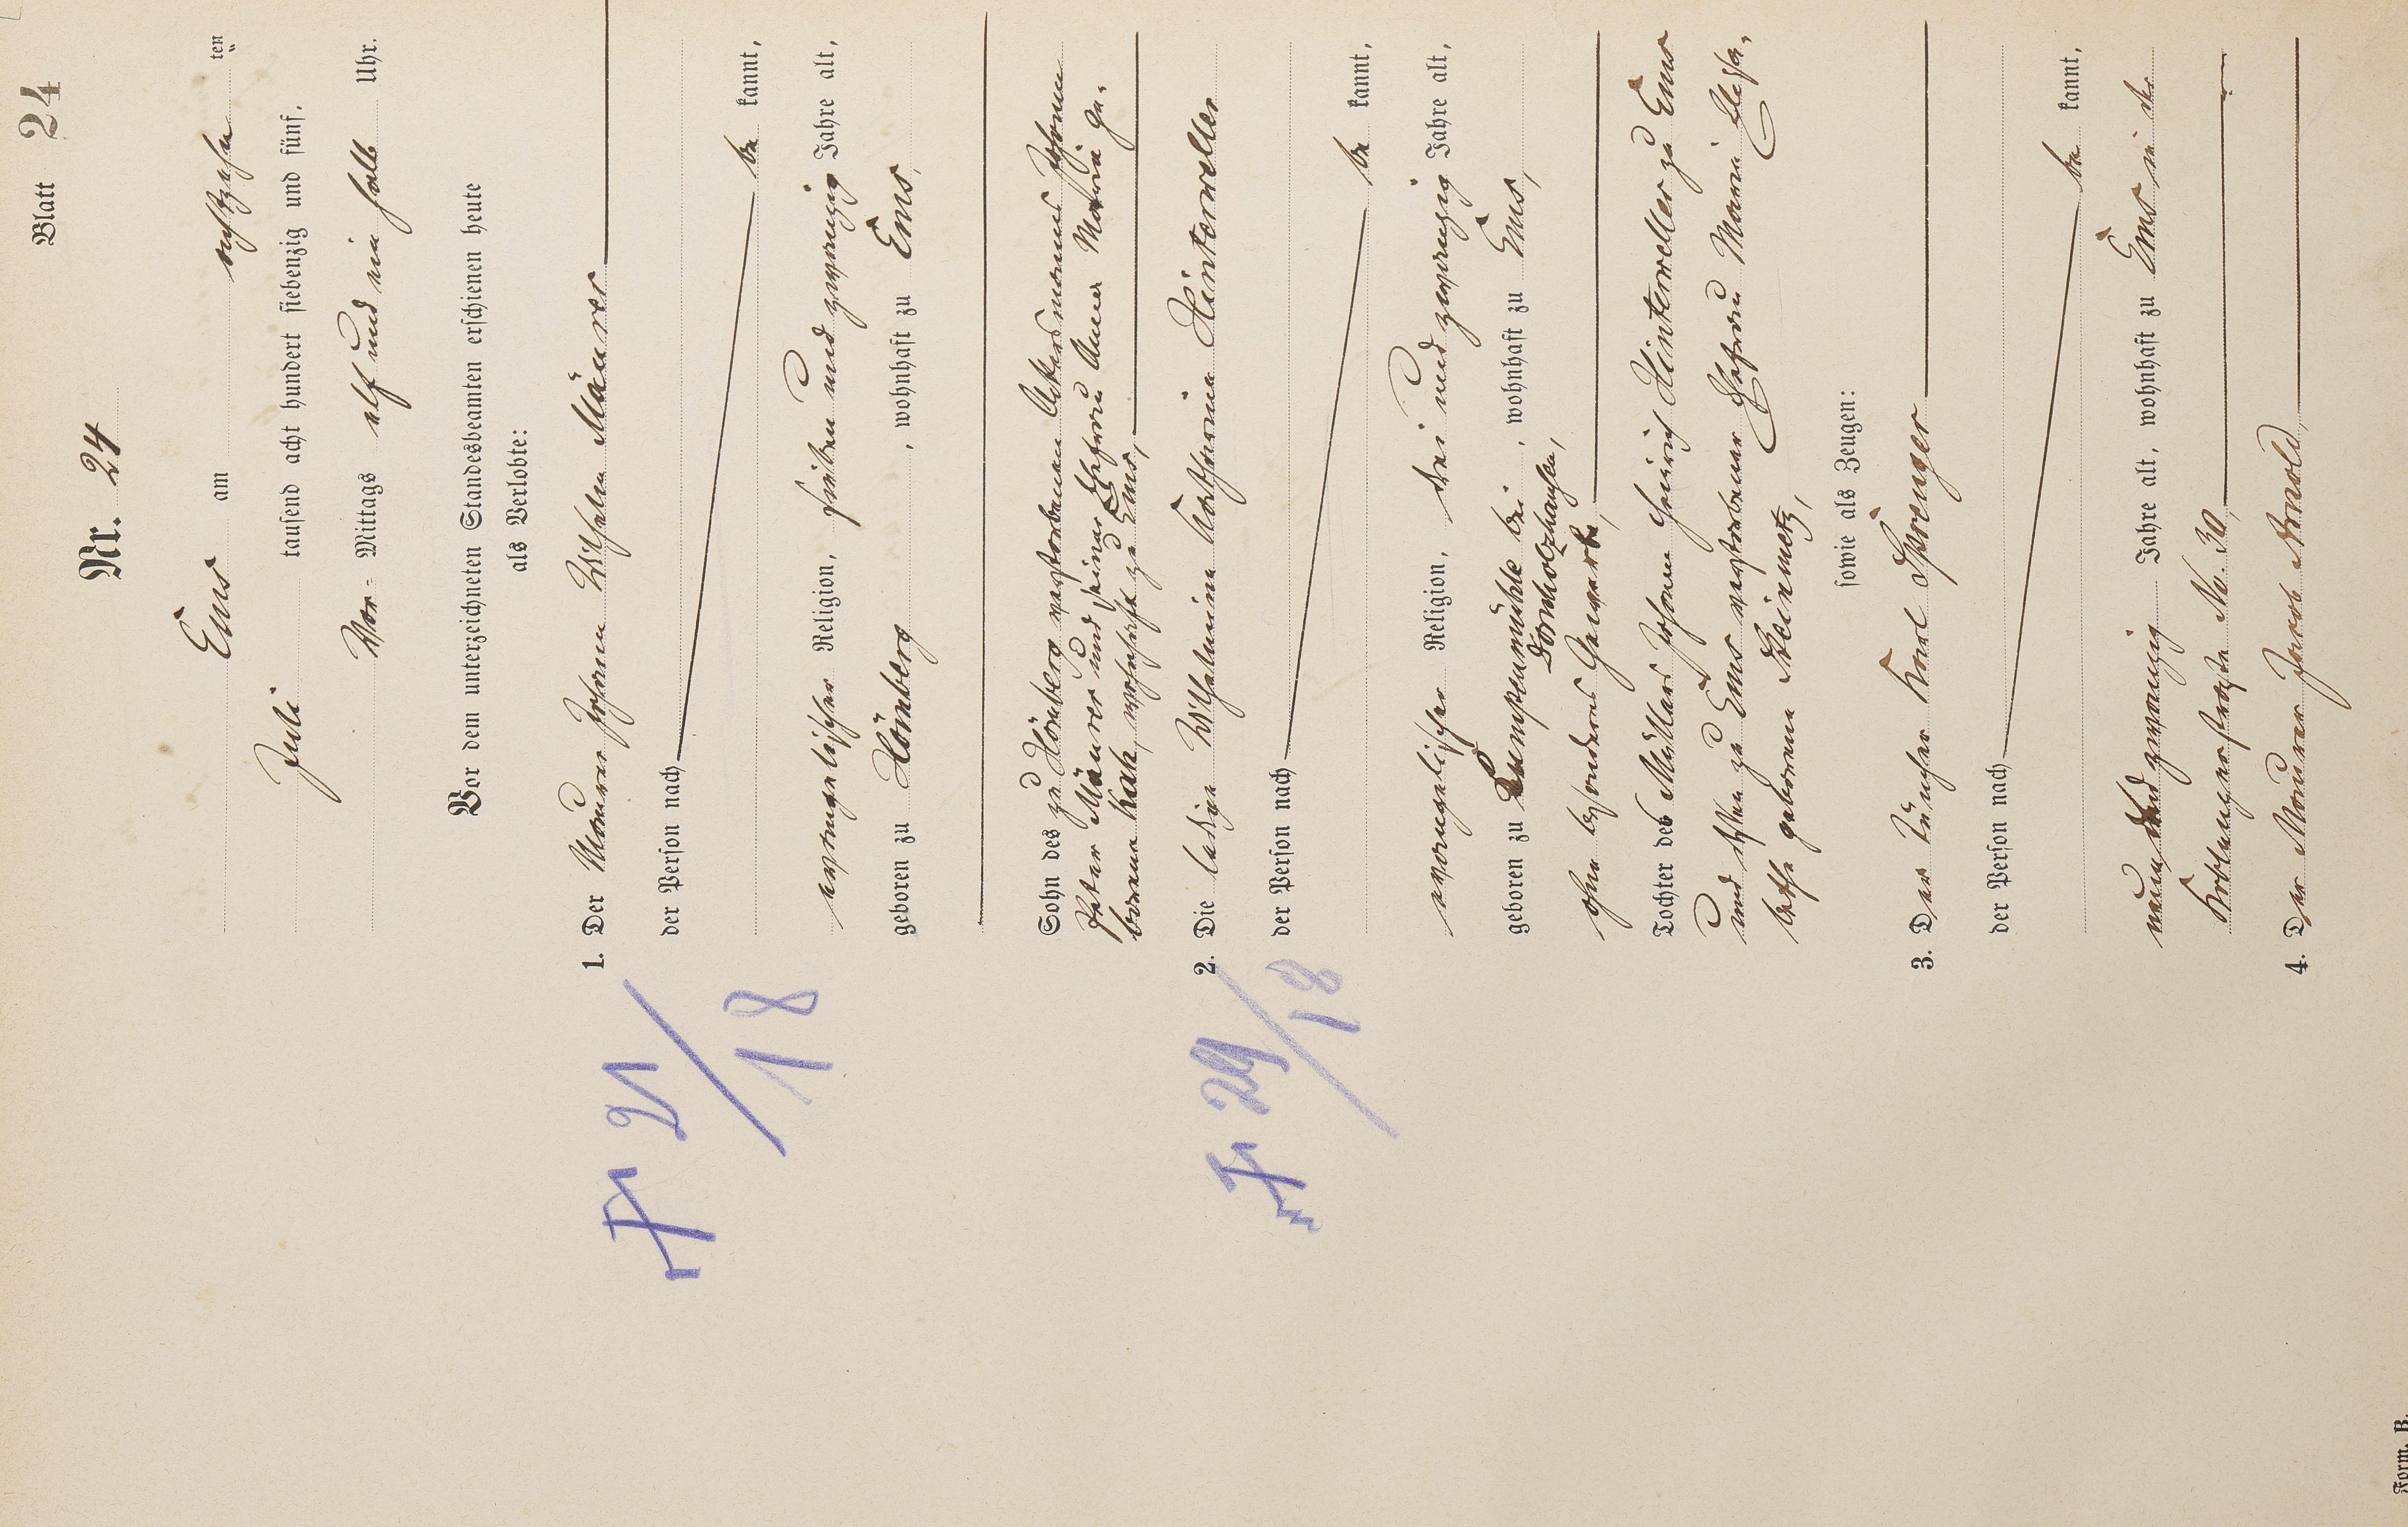 Blatt 24
Nr. 24
Ems am achtzehnten
Juli tausend acht hundert siebenzig und fünf,
Vor= Mittags elf und ein halb Uhr.
Vor dem unterzeichneten Standesbeamten erschienen heute
als Verlobte:
1. Der Maurer Johann Wilhelm Mäurer
der Person nach
be kannt,
evangelischer Religion, sieben und zwanzig Jahre alt,
geboren zu Hömberg, wohnhaft zu Ems,
Sohn des zu Hömberg verstorbenen Ackersmannes Johann
Peter Mäurer und seiner Ehefrau Anna Maria ge-
borene Kah, wohnhaft zu Ems,
2. Die ledige Wilhelmine Katharina Hinterweller
der Person nach
be kannt,
evangelischer Religion, drei und zwanzig Jahre alt,
geboren zu bei, wohnhaft zu Ems,
Dornholzhausen,
ohne besonderes Gewerbe,
Tochter des Müllers Johann Heinrich Hinterweller zu Ems
und dessen zu Ems verstorbener Ehefrau Maria Elisa-
betha geborene Steinmetz,
sowie als Zeugen:
3. Der Tüncher Karl Sprenger
der Person nach
be kannt,
neun und zwanzig Jahre alt, wohnhaft zu Ems in der
Koblenzerstraße No. 30,
4. Der Maurer Jacob Arnold,
Form. B.
F 21/18
F 29/18